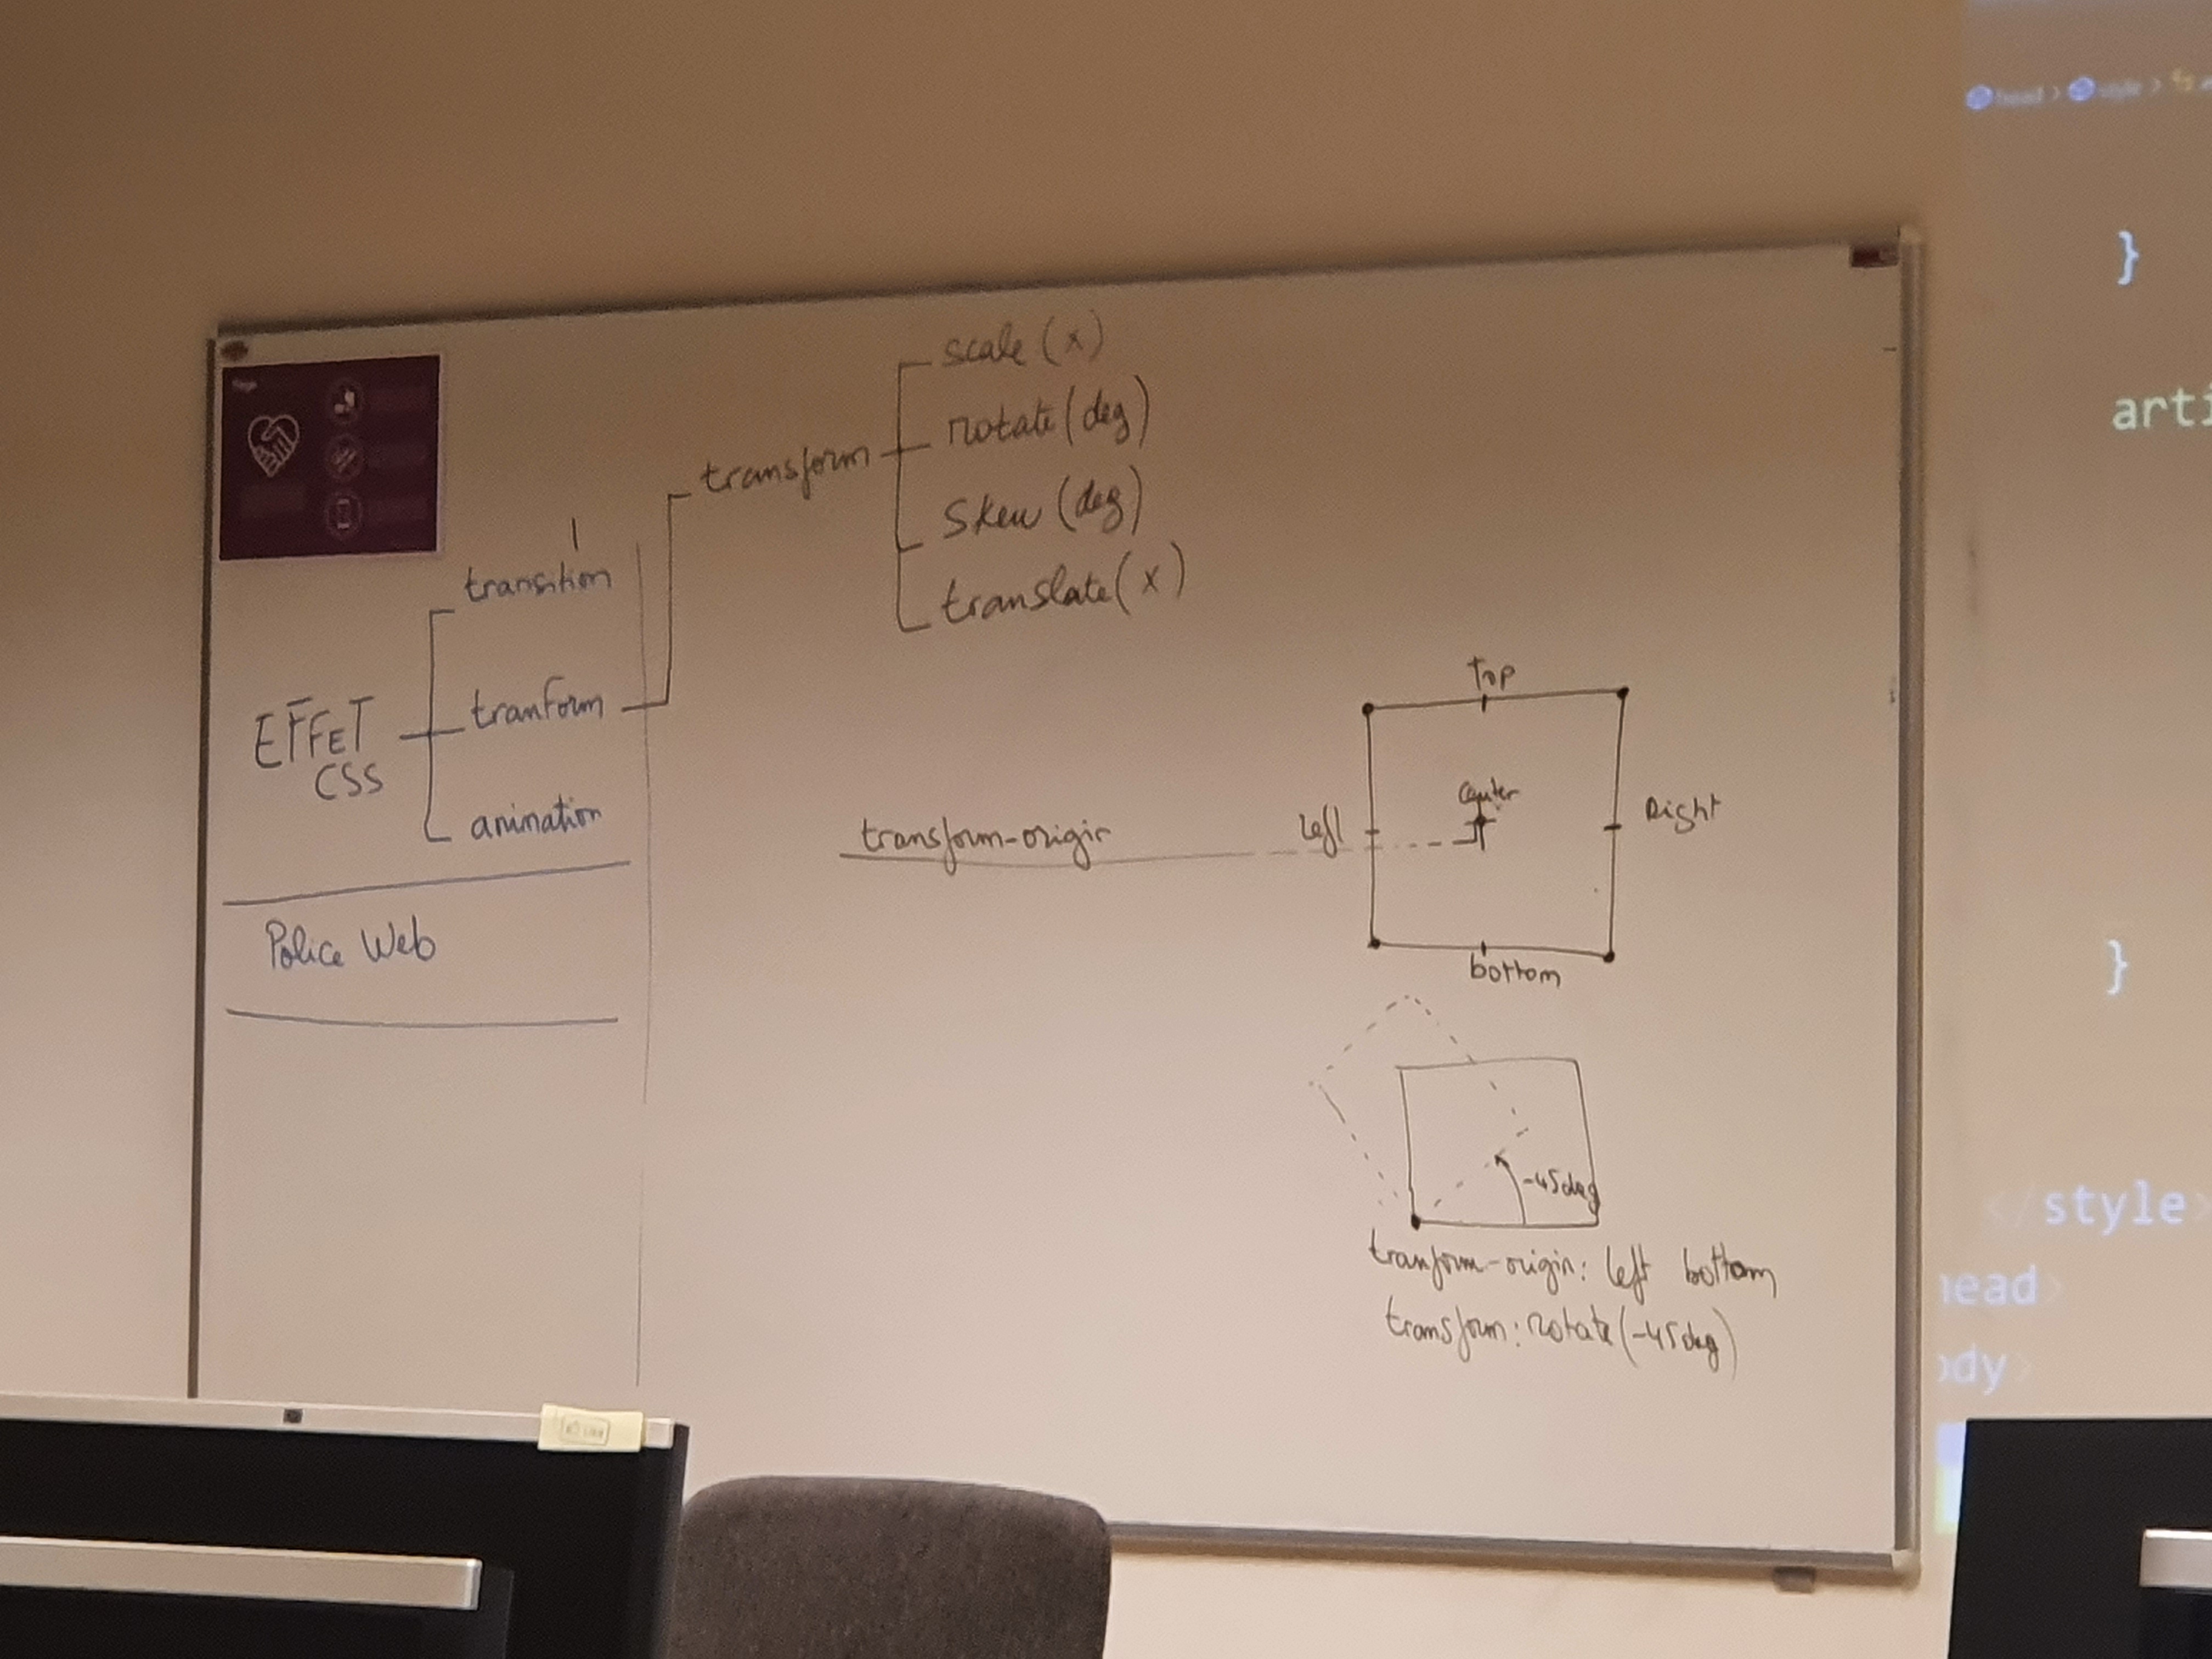 scale (x)
rotate (deg)
skew (deg)
translate (x)
transform
transition
tranform
animation
EFFET
CSS
Police Web
transform-origin
Top
Left
Center
Right
bottom
-45deg
tranform-origin: left bottom
transform: rotate(-45deg)
head > style >
}
arti
}
style>
head>
ody>